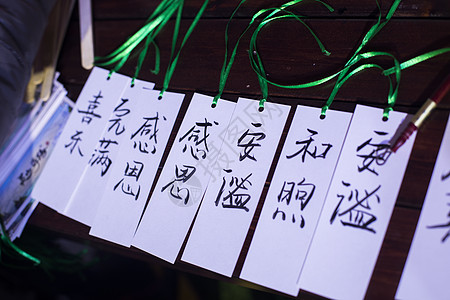 喜乐
满
感恩
感恩
安谧
和煦
安谧